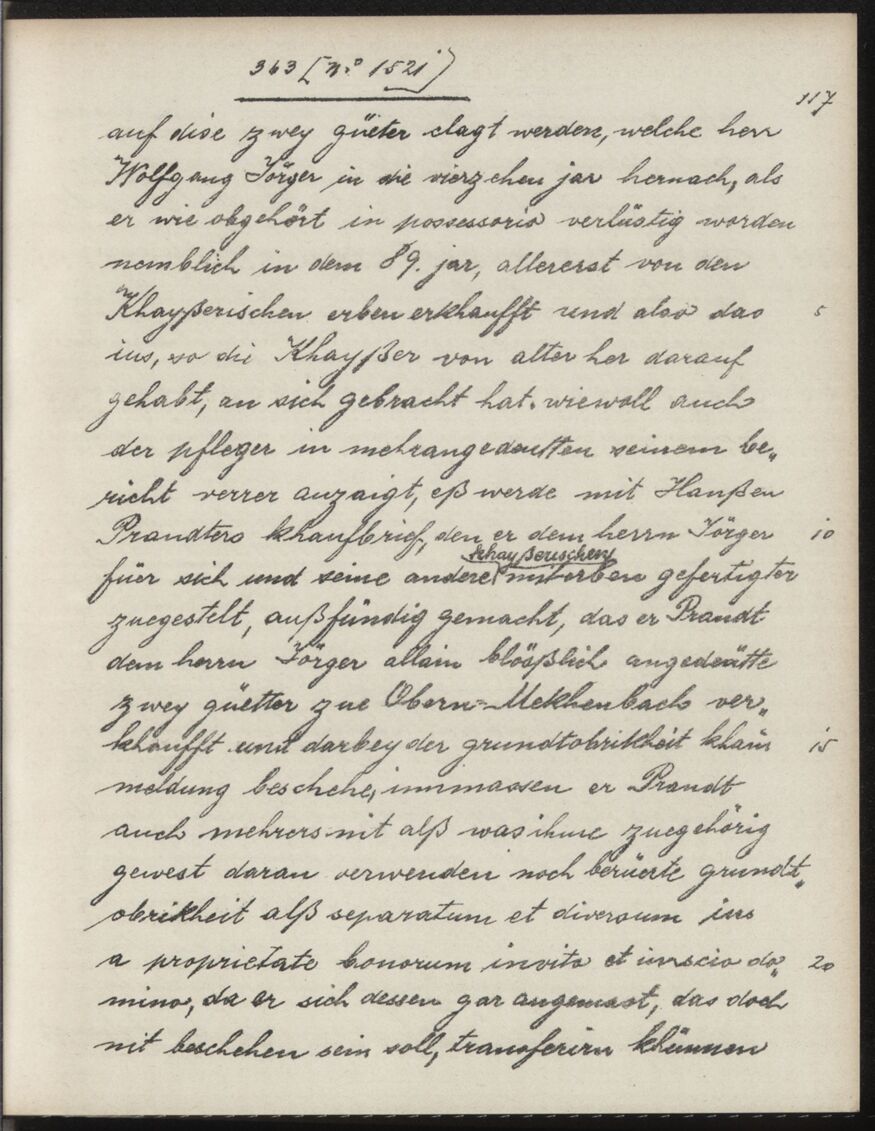 363 [n.º 1521)
117
auf dise zwey güeter clagt werden, welche herr
Wolfgang Jörger in die vierzehen jar hernach, als
er wie obgehört in possessorio verlüstig worden
nemblich in dem 89. jar, allererst von den
Khayßerischen erben erkhaufft und also das 5
ius, so die Khayßer von alter her darauf
gehabt, an sich gebracht hat. wiewoll auch
der pfleger in mehrangedeutten seinem be„
richt verrer anzaigt, eß werde mit Hanßen
Prandters khaufbrief, den er dem herrn Jörger 10
khayßerischen
füer sich und seine andere miterben gefertigter
zuegestelt, außfündig gemacht, das er Prandt
dem herrn Jörger allain blößlich angedeütte
zwey güetter zue Obern-Mekhenbach ver„
khaufft und darbey der grundtobrikheit khain 15
meldung beschehe, inmassen er Prandt
auch mehrers nit alß was ihme zuegehörig
gewest daran verwenden noch berüerte grundt„
obrikheit alß separatum et diversum ius
a proprietate bonorum invito et inscio do„ 20
mino, da er sich dessen gar angemast, das doch
nit beschehen sein soll, transferirn khünnen